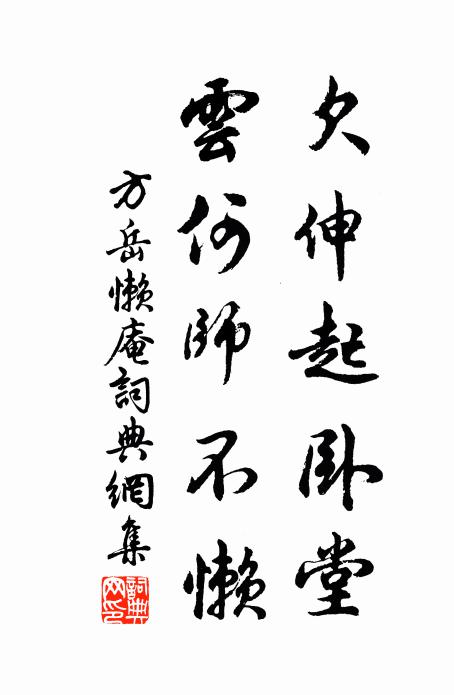 欠伸起卧堂
雲何師不懶
方岳懶庵詞典網集
詞典網印